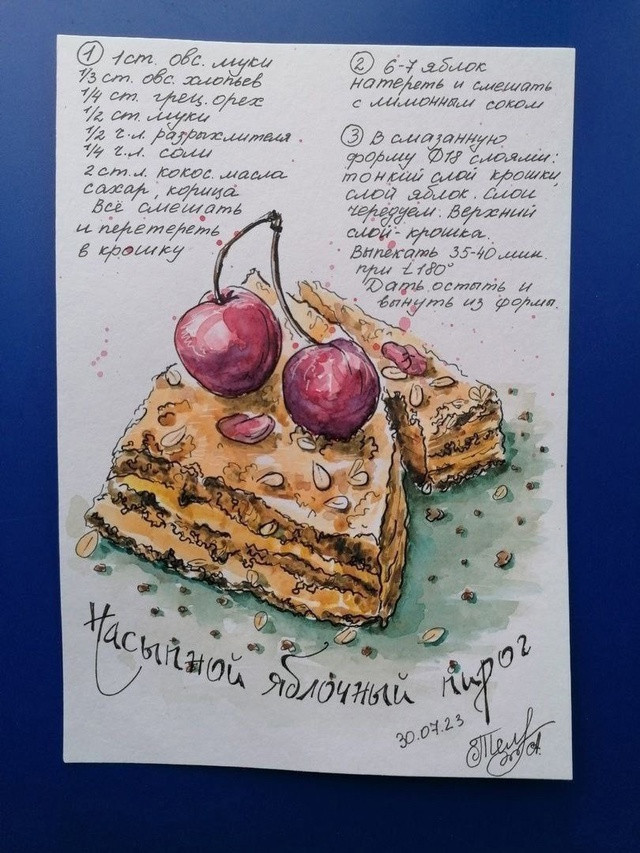 ① 1 ст. овс. муки
1/3 ст. овс. хлопьев
1/4 ст. грец. орех
1/2 ст. муки
1/2 ч.л. разрыхлителя
1/4 ч.л. соли
2 ст.л. кокос. масла
сахар, корица
Всё смешать
и перетереть
в крошку
② 6-7 яблок
натереть и смешать
с лимонным соком
③ В смазанную
форму Ф18 слоями:
тонкий слой крошки,
слой яблок. Слои
чередуем. Верхний
слой - крошка.
Выпекать 35-40 мин.
при t 180°
Дать остыть и
вынуть из формы.
Насыпной яблочный пирог
30.07.23